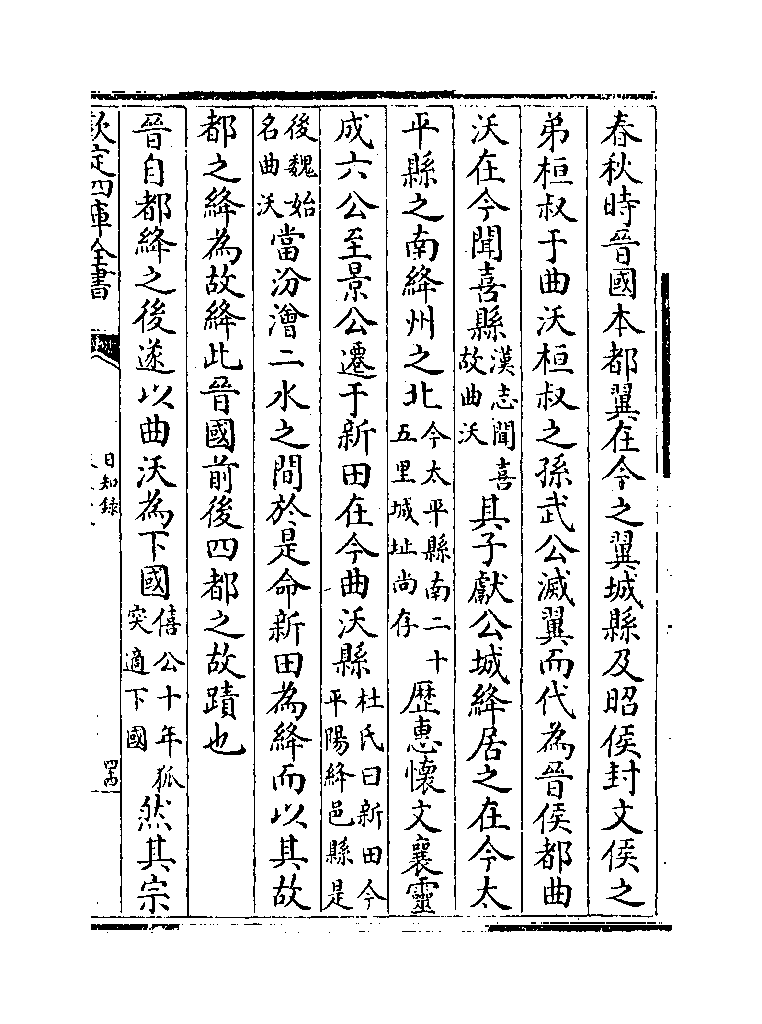 春秋時晉國本都翼在今之翼城縣及昭侯封文侯之
弟桓叔于曲沃桓叔之孫武公滅翼而代為晉侯都曲
沃在今聞喜縣漢志聞喜故曲沃其子獻公城絳居之在今太
平縣之南絳州之北今太平縣南二十五里城址尚存歴惠懷文襄靈
成六公至景公遷于新田在今曲沃縣杜氏曰新田今平陽絳邑縣是
後魏始名曲沃當汾澮二水之間於是命新田為絳而以其故
都之絳為故絳此晉國前後四都之故蹟也
晉自都絳之後遂以曲沃為下國僖公十年狐突適下國然其宗
欽定四庫全書
日知録